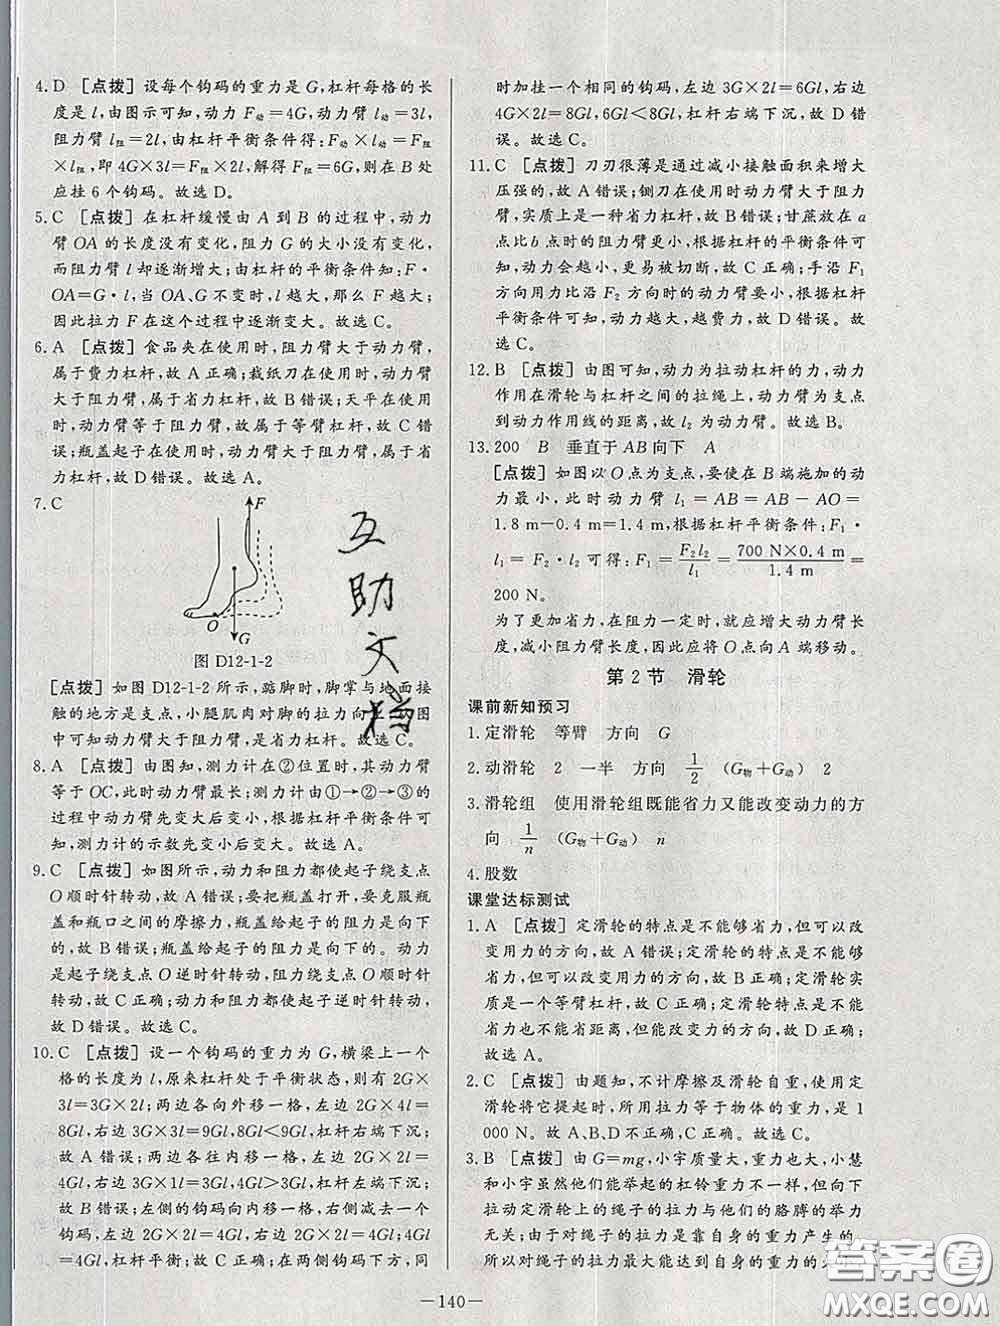 4. D [点拨] 设每个钩码的重力是 G,杠杆每格的长
度是 l,由图示可知,动力 F动=4G,动力臂 l动=3l,
阻力臂 l阻=2l,由杠杆平衡条件得:F动×l动=F阻
×l阻,即 4G×3l=F阻×2l,解得 F阻=6G,则在 B 处
应挂 6 个钩码。故选 D。
5. C [点拨] 在杠杆缓慢由 A 到 B 的过程中,动力
臂 OA 的长度没有变化,阻力 G 的大小没有变化,
而阻力臂 l 却逐渐增大;由杠杆的平衡条件知:F·
OA=G·l,当 OA、G 不变时,l 越大,那么 F 越大;
因此拉力 F 在这个过程中逐渐变大。故选 C。
6. A [点拨] 食品夹在使用时,阻力臂大于动力臂,
属于费力杠杆,故 A 正确;裁纸刀在使用时,动力臂
大于阻力臂,属于省力杠杆,故 B 错误;天平在使用
时,动力臂等于阻力臂,故属于等臂杠杆,故 C 错
误;瓶盖起子在使用时,动力臂大于阻力臂,属于省
力杠杆,故 D 错误。故选 A。
7. C
F
O
G
图 D12-1-2
[点拨] 如图 D12-1-2 所示,踮脚时,脚掌与地面接
触的地方是支点,小腿肌肉对脚的拉力向上,
图
中可知动力臂大于阻力臂,是省力杠杆。故选 C。
8. A [点拨] 由图知,测力计在②位置时,其动力臂
等于 OC,此时动力臂最长;测力计由①→②→③的
过程中动力臂先变大后变小,根据杠杆平衡条件可
知,测力计的示数先变小后变大。故选 A。
9. C [点拨] 如图所示,动力和阻力都使起子绕支点
O 顺时针转动,故 A 错误;要把瓶盖打开,要克服瓶
盖和瓶口之间的摩擦力,瓶盖给起子的阻力是向下
的,故 B 错误;瓶盖给起子的阻力是向下的。动力
是起子绕支点 O 逆时针转动,阻力绕支点 O 顺时针
转动,故 C 正确;动力和阻力都使起子逆时针转动,
故 D 错误。故选 C。
10. C [点拨] 设一个钩码的重力为 G,横梁上一个
格的长度为 l,原来杠杆处于平衡状态,则有 2G×
3l=3G×2l;两边各向外移一格,左边 2G×4l=
8Gl,右边 3G×3l=9Gl,8Gl<9Gl,杠杆右端下沉,
故 A 错误;两边各往内移一格,左边 2G×2l=
4Gl,右边 3G×1l=3Gl,4Gl>3Gl,杠杆左端下沉,
故 B 错误;左侧的钩码向内移一格,右侧减去一个
钩码,左边 2G×2l=4Gl,右边 2G×2l=4Gl,4Gl
=4Gl,杠杆平衡;故 C 正确;在两侧钩码下方,同
互
助
文
档
时加挂一个相同的钩码,左边 3G×2l=6Gl,右边
4G×2l=8Gl,6Gl<8Gl,杠杆右端下沉,故 D 错
误。故选 C。
11. C [点拨] 刀刃很薄是通过减小接触面积来增大
压强的,故 A 错误;铡刀在使用时动力臂大于阻力
臂,实质上是一种省力杠杆,故 B 错误;甘蔗放在 a
点比 b 点时的阻力臂更小,根据杠杆的平衡条件可
知,动力会越小,更易被切断,故 C 正确;手沿 F₁
方向用力比沿 F₂ 方向时的动力臂要小,根据杠杆
平衡条件可知,动力越大,越费力,故 D 错误。故
选 C。
12. B [点拨] 由图可知,动力为拉动杠杆的力,动力
作用在滑轮与杠杆之间的拉绳上,动力臂为支点
到动力作用线的距离,故 l₂ 为动力臂。故选 B。
13. 200 B 垂直于 AB 向下 A
[点拨] 如图以 O 点为支点,要使在 B 端施加的动
力最小,此时动力臂 l₁=AB=AB-AO=
1.8 m-0.4 m=1.4 m,根据杠杆平衡条件:F₁·
l₁=F₂·l₂ 可得:F₁=F₂l₂/l₁=700 N×0.4 m/1.4 m=
200 N。
为了更加省力,在阻力一定时,就应增大动力臂长
度,减小阻力臂长度,因此应将 O 点向 A 端移动。
第 2 节 滑轮
课前新知预习
1. 定滑轮 等臂 方向 G
2. 动滑轮 2 一半 方向 1/2 (G物+G动) 2
3. 滑轮组 使用滑轮组既能省力又能改变动力的方
向 1/n (G物+G动) n
4. 股数
课堂达标测试
1. A [点拨] 定滑轮的特点是不能够省力,但可以改
变用力的方向,故 A 错误;定滑轮的特点是不能够
省力,但可以改变用力的方向,故 B 正确;定滑轮实
质是一个等臂杠杆,故 C 正确;定滑轮特点是不能
省力也不能省距离,但能改变力的方向,故 D 正确;
故选 A。
2. C [点拨] 由题知,不计摩擦及滑轮自重,使用定
滑轮将它提起时,所用拉力等于物体的重力,是 1
000 N。故 A、B、D 不正确,C 正确。故选 C。
3. B [点拨] 由 G=mg,小宇质量大,重力也大,小慧
和小宇虽然他们能举起的杠铃重力不一样,但向下
拉动定滑轮上的绳子的拉力与他们的胳膊的举力
无关;由于对绳子的拉力是靠自身的重力产生的,
所以对绳子的拉力最大能达到自身的重力的大小,
— 140 —
答案圈
MXQE.COM